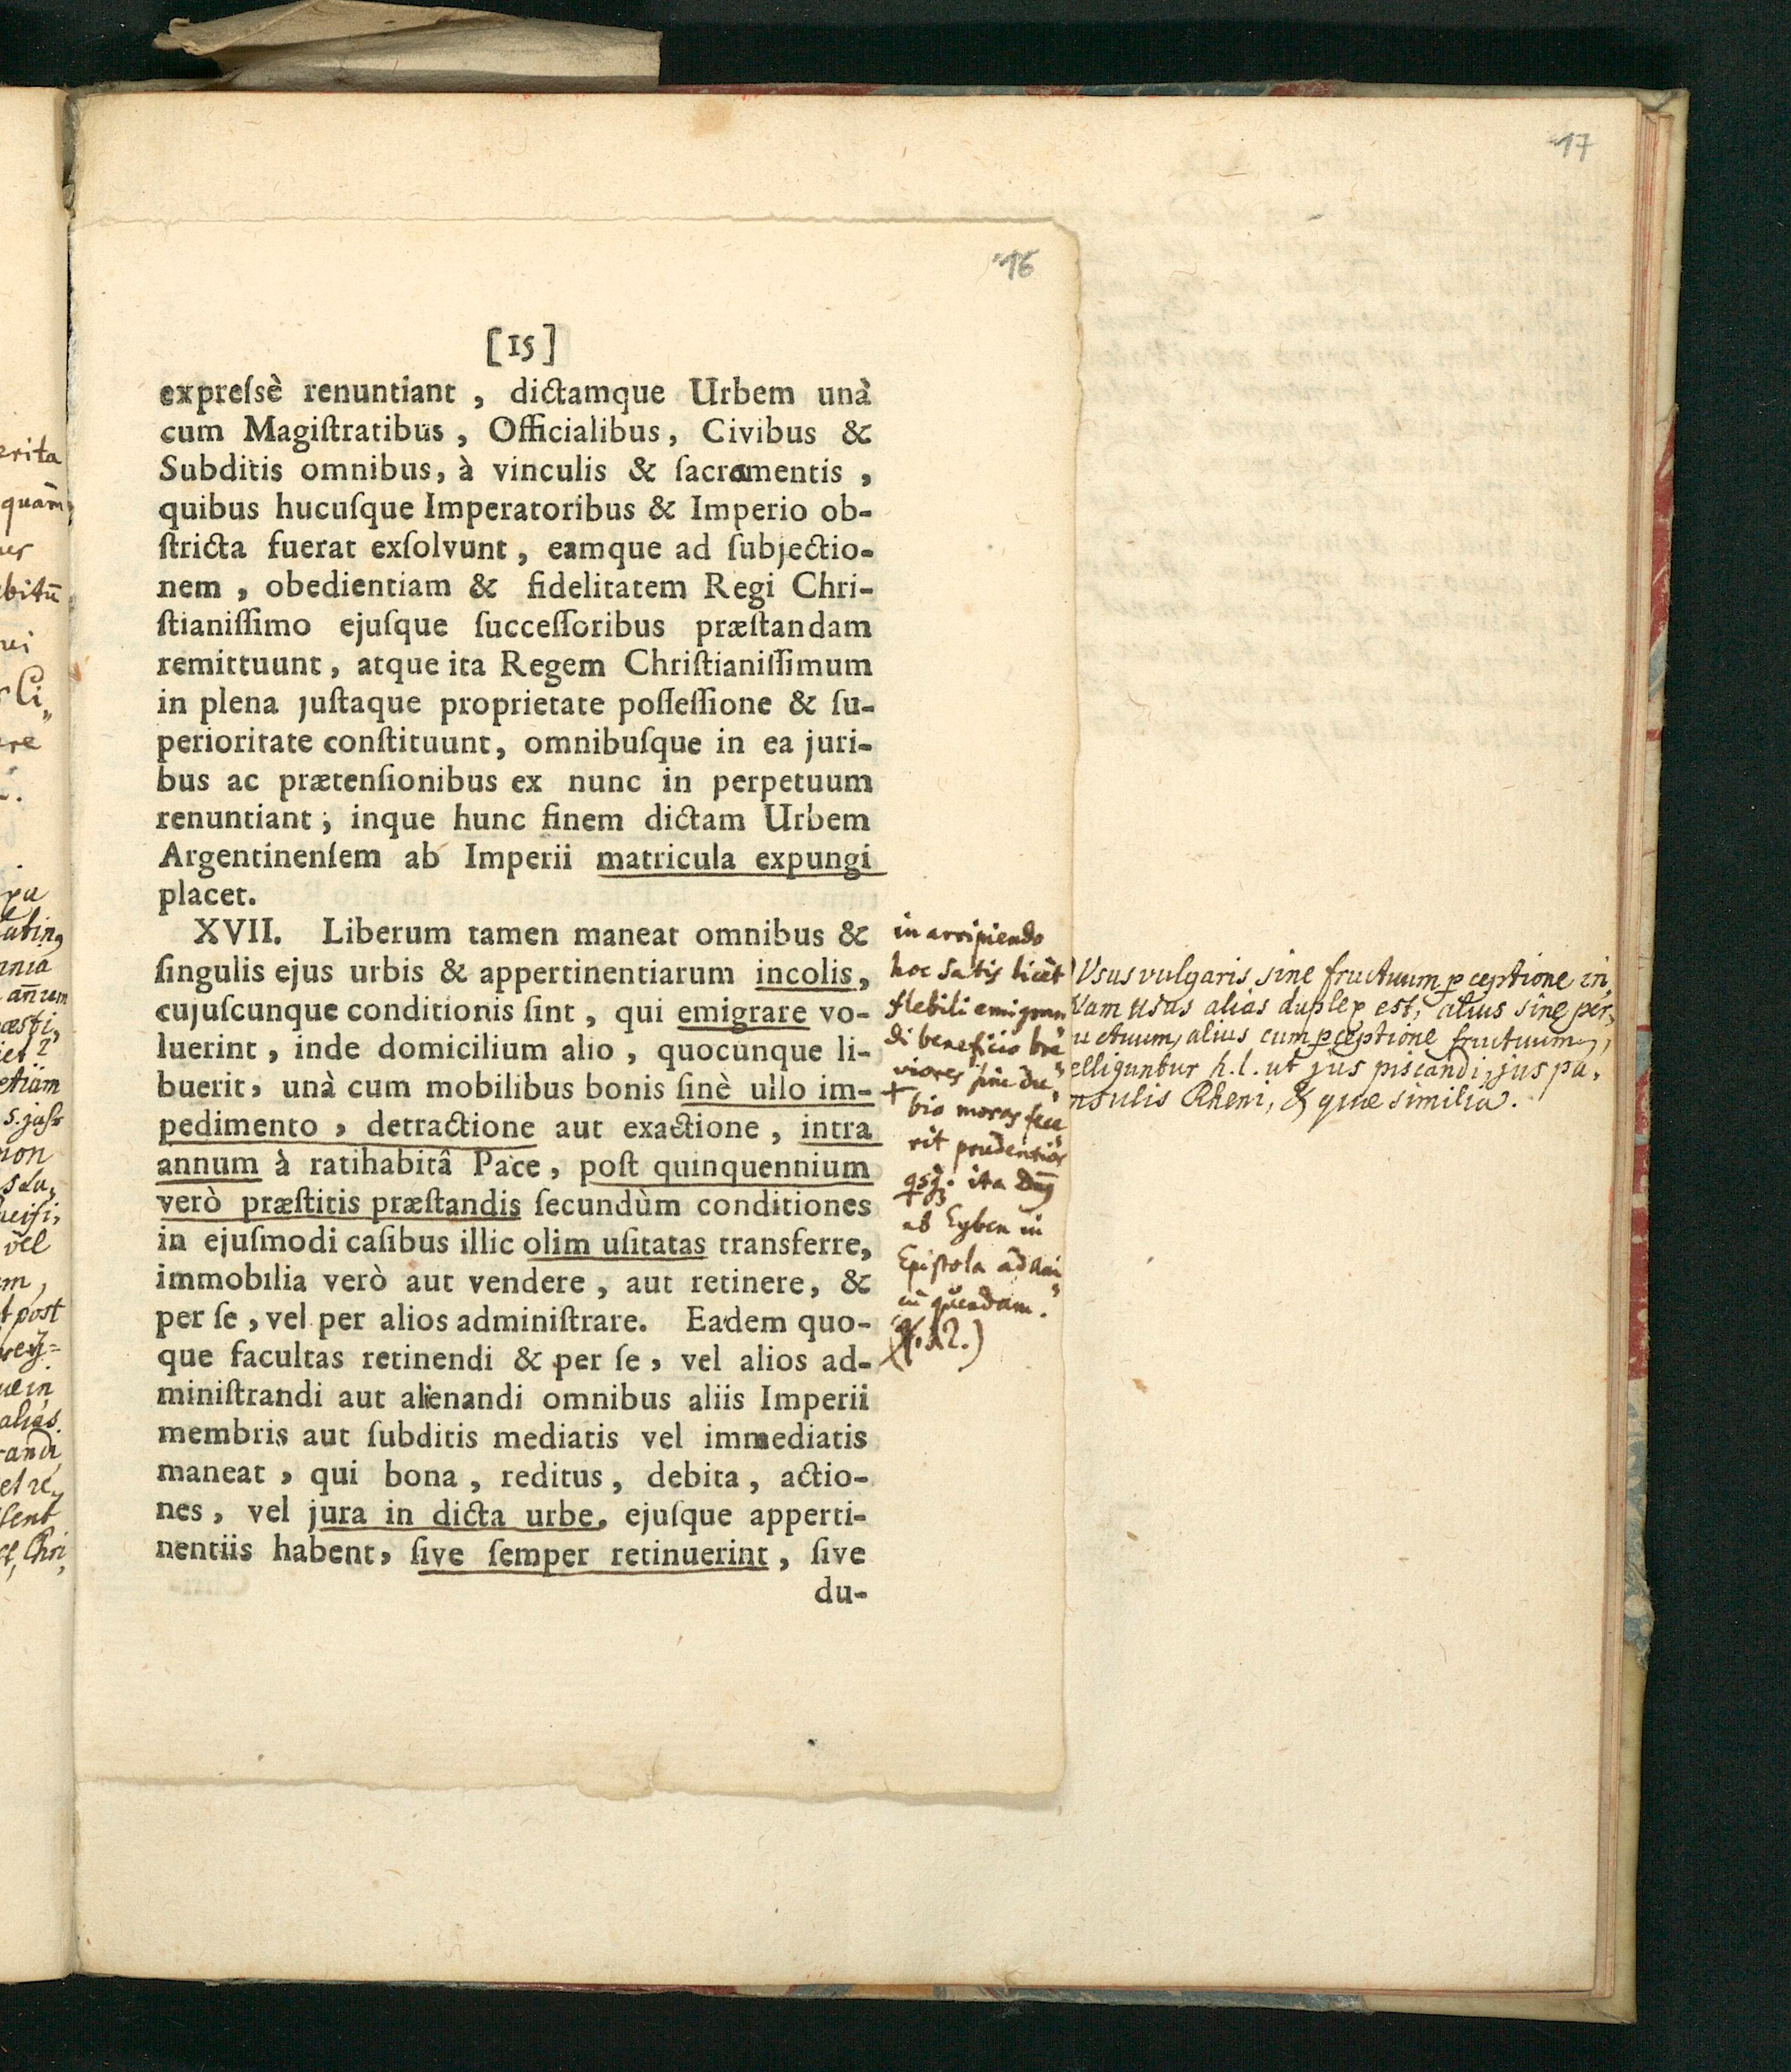 17
16
[15]
expreſsè renuntiant, dictamque Urbem unà
cum Magiſtratibus, Officialibus, Civibus &
Subditis omnibus, à vinculis & ſacramentis,
quibus hucuſque Imperatoribus & Imperio ob-
ſtricta fuerat exſolvunt, eamque ad ſubjectio-
nem, obedientiam & fidelitatem Regi Chri-
ſtianiſſimo ejuſque ſucceſſoribus præſtandam
remittuunt, atque ita Regem Chriſtianiſſimum
in plena juſtaque proprietate poſſeſſione & ſu-
perioritate conſtituunt, omnibuſque in ea juri-
bus ac prætenſionibus ex nunc in perpetuum
renuntiant; inque hunc finem dictam Urbem
Argentinenſem ab Imperii matricula expungi
placet.
XVII. Liberum tamen maneat omnibus &
ſingulis ejus urbis & appertinentiarum incolis,
cujuſcunque conditionis ſint, qui emigrare vo-
luerint, inde domicilium alio, quocunque li-
buerit, unà cum mobilibus bonis ſinè ullo im-
pedimento, detractione aut exactione, intra
annum à ratihabitâ Pace, poſt quinquennium
verò præſtitis præſtandis ſecundùm conditiones
in ejuſmodi caſibus illic olim uſitatas transferre,
immobilia verò aut vendere, aut retinere, &
per ſe, vel per alios adminiſtrare. Eadem quo-
que facultas retinendi & per ſe, vel alios ad-
miniſtrandi aut alienandi omnibus aliis Imperii
membris aut ſubditis mediatis vel immediatis
maneat, qui bona, reditus, debita, actio-
nes, vel jura in dicta urbe, ejuſque apperti-
nentiis habent, ſive ſemper retinuerint, ſive
du-
in arripiendo
hoc satis licèt
flebili emigran
di beneficio bre
viores sine du
bio moras fece
rit prudentior
qsq. ita
ab Eyben in
Epistola ad
quendam.
Usus vulgaris sine fructuum pceptione in,
Nam usus alias duplex est, alius sine per,
uctuum, alius cum pceptione fructuum,
elliguntur h.l. ut jus piscandi, jus pa,
nsulis Rheni, & quae similia.
erita
quam
non
vel
post
alias